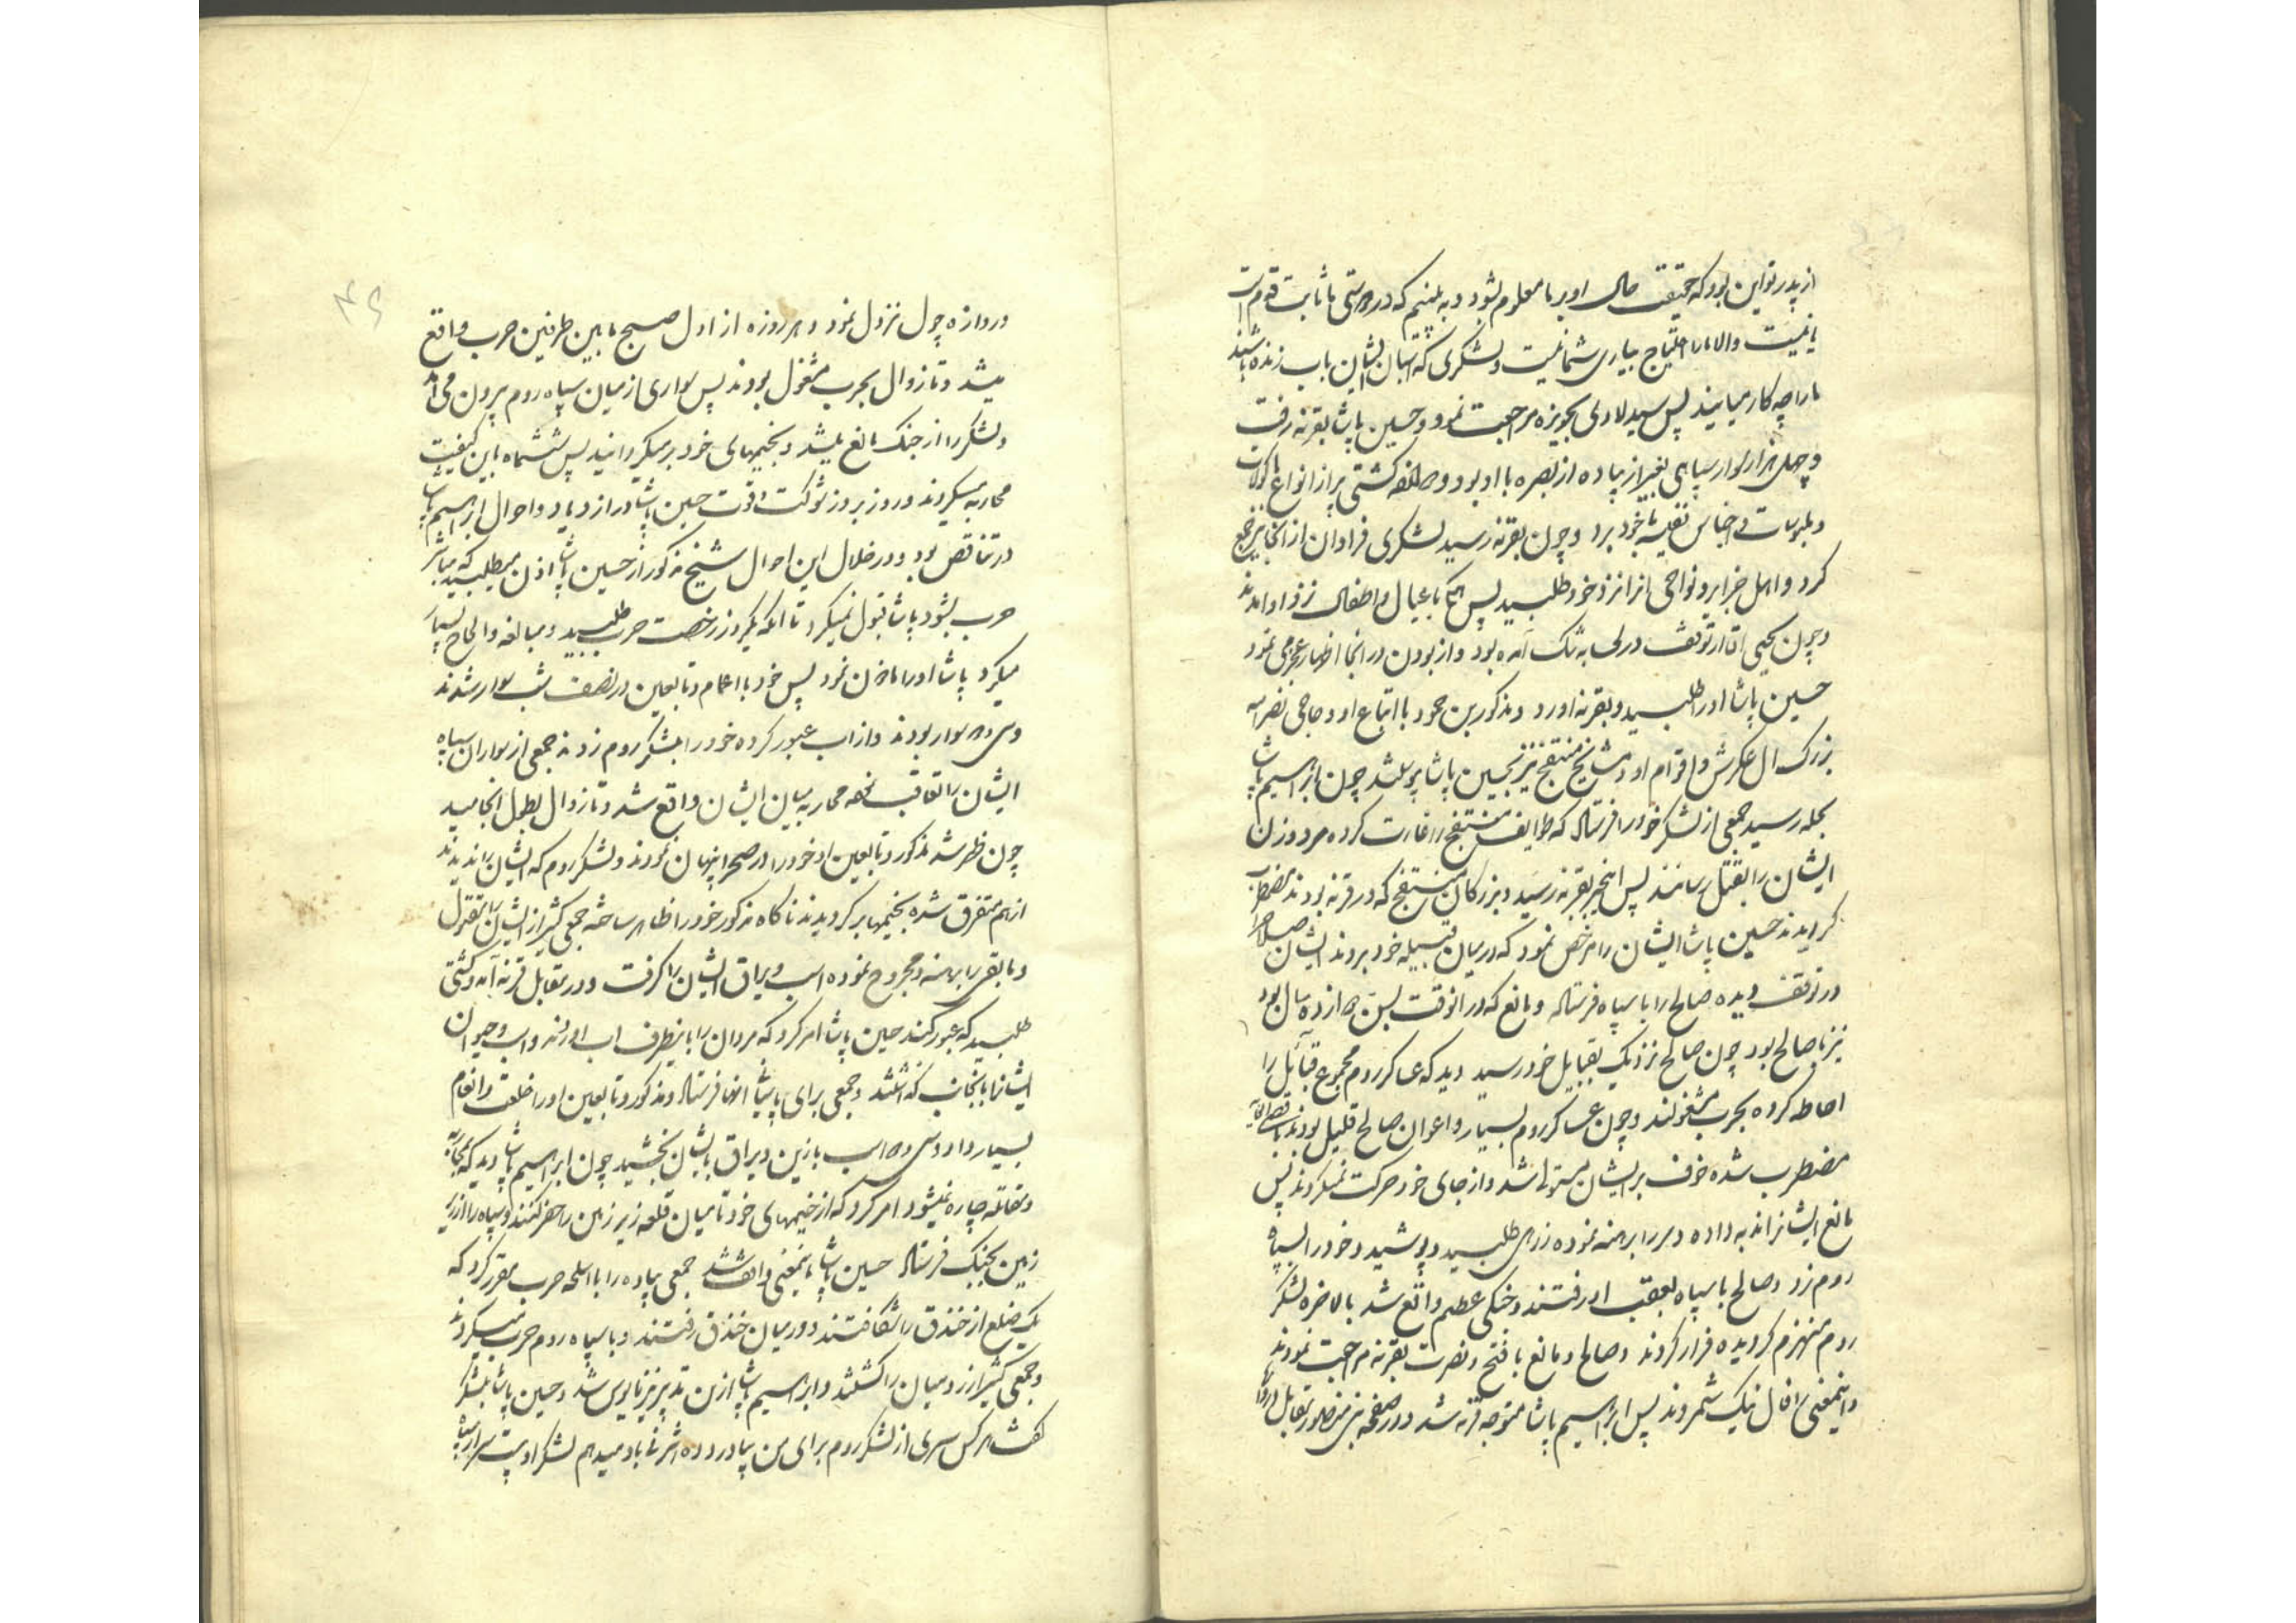 از پدر تو این بود که حقیقت حال او بر ما معلوم بشود و به بینیم که در دوستی ما ثابت قدم است
یا نیست والا ما را احتیاج بیاری شما نیست و لشکری که اسبان ایشان بآب زنده باشند
ما را چه کار میایند پس سید لاوی بحویزه مراجعت نمود و حسین پاشا بقرنه رفت
و چهل هزار سوار سپاهی بغیر از پیاده از بصره با او بود و کشتی پر از انواع ماکولات
و ملبوسات و اجناس نفیسه با خود برد و چون بقرنه رسید لشکری فراوان از انجا نیز جمع
کرد و اهل جزایر و نواحی انرا نزد خود طلبید پس همه با عیال و اطفال نزد او امدند
و چون یحیی اقا از توقف در لی به تنک آمده بود و از بودن در انجا اظهار عجز می نمود
حسین پاشا او را طلبید و بقرنه اورد و مذکور بن حمود با اتباع او و حاجی نصراله
بزرک ال عکرش و اقوام او و مشایخ منتفج نیز بحسین پاشا چون ابراهیم پاشا
بحله رسید جمعی از لشکر خود را فرستاد که طوایف منتفج را غارت کرده مرد و زن
ایشان را بقتل رسانند پس این خبر بقرنه رسید و بزرکان منتفج که در قرنه بودند مضطرب
کردیدند حسین پاشا ایشان را مرخص نمود که در میان قبیله خود بروند ایشان صلاح
در توقف دیده صالح را با سپاه فرستاد و مانع که در انوقت بسن دوازده سال بود
نیز با صالح بود چون صالح نزدیک بقبایل خود رسید دید که عساکر روم مجموع قبائل را
احاطه کرده بحرب مشغولند و چون عساکر روم بسیار و اعوان صالح قلیل بودند
مضطرب شده خوف بر ایشان مستولی شد و از جای خود حرکت نمیکردند پس
مانع ایشانرا ندبه داده و سر را برهنه نموده زرهی طلبید و پوشید و خود را بسپاه
روم زد و صالح با سپاه بعقب او رفتند و جنکی عظیم واقع شد بالاخره لشکر
روم منهزم کردیده فرار کردند و صالح و مانع با فتح و نصرت بقرنه مراجعت نمودند
و اینمعنی را فال نیک شمردند پس ابراهیم پاشا متوجه قرنه شد و در صفحه بنی منصور مقابل
دروازه چول نزول نمود و هر روزه از اول صبح مابین طرفین حرب واقع
میشد و تا زوال بحرب مشغول بودند پس سواری از میان سپاه روم بیرون می آمد
و لشکر را از جنک مانع میشد و بخیمهای خود بر میکردانید پس ششماه باین کیفیت
محاربه میکردند و روز بروز شوکت و قوت حسین پاشا در ازدیاد و احوال ابراهیم پاشا
در تناقص بود و در خلال این احوال شیخ مذکور از حسین پاشا اذن میطلبید که مباشر
حرب بشود پاشا قبول نمیکرد تا انکه یکروز رخصت حرب طلبید و مبالغه و الحاح بسیار
میکرد پاشا او را ماذن نمود پس خود با اعمام و تابعین در نصف شب سوار شدند
و سی سوار بودند و از اب عبور کرده خود را بلشکر روم زدند جمعی از سواران سپاه
ایشان را تعاقب نموده محاربه میان ایشان واقع شد و تا زوال بطول انجامید
چون ظهر شد مذکور و تابعین او خود را در صحرا پنهان نمودند و لشکر روم که ایشان را ندیدند
از هم متفرق شده بخیمها بر کردیدند ناکاه مذکور خود را ظاهر ساخته جمعی کثیر از ایشان را مقتول
و مابقی را برهنه و مجروح نموده اسب و یراق ایشان را کرفت و در مقابل قرنه آمد و کشتی
طلبید که عبور کنند حسین پاشا امر کرد که مردان را باینطرف اب اوردند و اسب و حیوان
ایشانرا بانجانب کذاشتند و جمعی برای پاسبانی انها فرستاد و مذکور و تابعین او را خلعت و انعام
بسیار داد و سی اسب با زین و یراق بایشان بخشید چون ابراهیم پاشا دید که بمحاربه
و مقاتله چاره نمیشود امر کرد که از خیمهای خود تا میان قلعه زیر زمین را حفر کنند و سپاه را از زیر
زمین بجنک فرستاد حسین پاشا باینمعنی واقف شد جمعی پیاده را با اسلحه حرب مقرر کرد که
یک ضلع از خندق را شکافتند و در میان خندق رفتند و با سپاه روم حرب میکردند
و جمعی کثیر از رومیان را کشتند و ابراهیم پاشا ازین تدبیر نیز مایوس شد و حسین پاشا بلشکر
کفت هر کس سری از لشکر روم برای من بیاورد ده اشرفی باو میدهم لشکر او